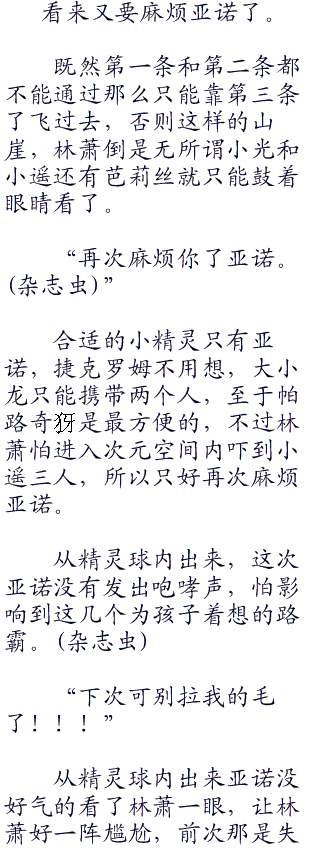 看来又要麻烦亚诺了。
既然第一条和第二条都
不能通过那么只能靠第三条
了飞过去，否则这样的山
崖，林萧倒是无所谓小光和
小遥还有芭莉丝就只能鼓着
眼睛看了。
“再次麻烦你了亚诺。
(杂志虫)”
合适的小精灵只有亚
诺，捷克罗姆不用想，大小
龙只能携带两个人，至于帕
路奇犽是最方便的，不过林
萧怕进入次元空间内吓到小
遥三人，所以只好再次麻烦
亚诺。
从精灵球内出来，这次
亚诺没有发出咆哮声，怕影
响到这几个为孩子着想的路
霸。(杂志虫)
“下次可别拉我的毛
了！！！”
从精灵球内出来亚诺没
好气的看了林萧一眼，让林
萧好一阵尴尬，前次那是失